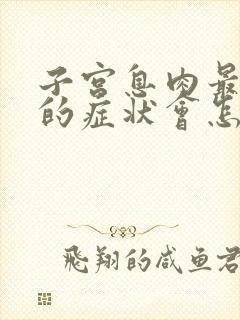 子宫息肉最
的症状會怎
飛翔的咸鱼君